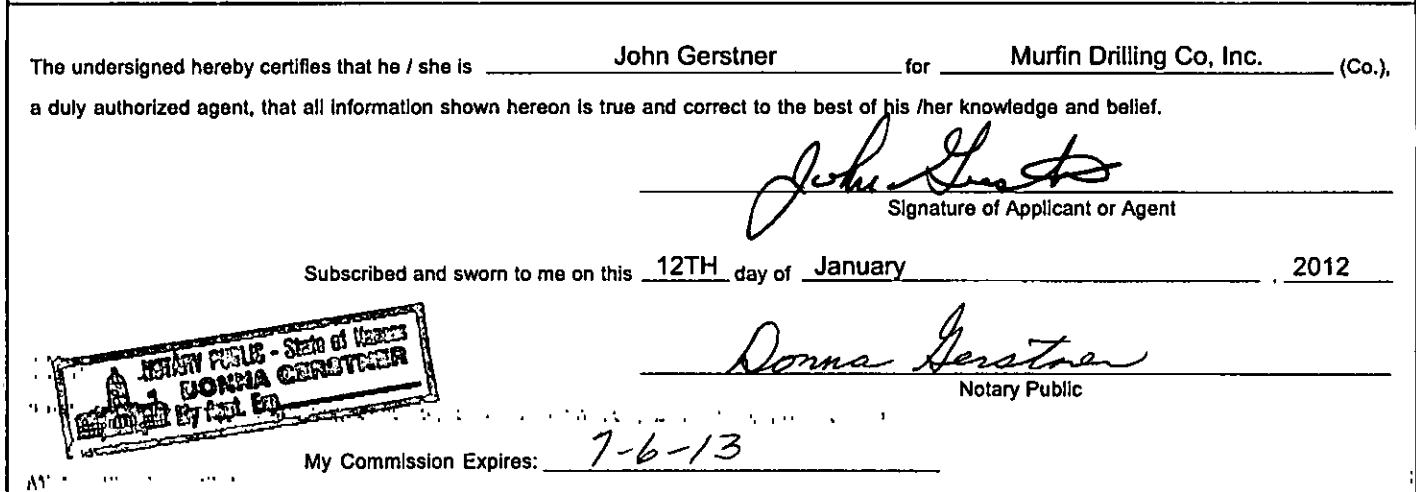 The undersigned hereby certifies that he / she is John Gerstner for Murfin Drilling Co, Inc. (Co.),
a duly authorized agent, that all information shown hereon is true and correct to the best of his /her knowledge and belief.
John Gerstner
Signature of Applicant or Agent
Subscribed and sworn to me on this 12TH day of January , 2012
NOTARY PUBLIC - State of Kansas
DONNA GERSTNER
My Appt. Exp.
Donna Gerstner
Notary Public
My Commission Expires: 7-6-13